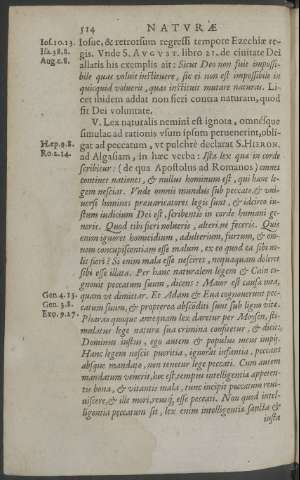 514 NATVRÆ
Ios.10.13. Iosue, & retrorsum regressi tempore Ezechiæ re-
Isa.38.8. gis. Vnde S. AVGVST. libro 21. de ciuitate Dei
Aug.c.8. allatis his exemplis ait: Sicut Deo non fuit impossi-
bile quas voluit instituere, sic ei non est impossibile in
quicquid voluerit, quas instituit mutare naturas. Li-
cet ibidem addat non fieri contra naturam, quod
fit Dei voluntate.
V. Lex naturalis nemini est ignota, omnesque
simulac ad rationis vsum ipsum peruenerint, obli-
Hep.9.8. gat ad peccatum, vt pulchrè declarat S. HIERON.
Ro.2.14. ad Algasiam, in hæc verba: Ista lex quæ in corde
scribitur: (de qua Apostolus ad Romanos) omnes
continet nationes, & nullus hominum est, qui hanc le-
gem nesciat. Vnde omnis mundus sub peccato, & vni-
uersi homines præuaricatores legis sunt, & idcirco iu-
stum iudicium Dei est, scribentis in corde humani ge-
neris. Quod tibi fieri nolueris, alteri ne feceris. Quis
enim ignoret homicidium, adulterium, furtum, & om-
nem concupiscentiam esse malum, ex eo quod ea sibi no-
lit fieri? Si enim mala esse nesciret, nequaquam doleret
sibi esse illata. Per hanc naturalem legem & Cain co-
gnouit peccatum suum, dicens: Maior est causa mea,
Gen.4.13. quam vt dimittar. Et Adam & Eua cognouerunt pec-
Gen.3.8. catum suum, & propterea absconditi sunt sub ligno vitæ.
Exo.9.27. Pharao quoque antequam lex daretur per Moysen, sti-
mulatur lege naturæ sua crimina confitetur, & dicit,
Dominus iustus, ego autem & populus meus impij.
Hanc legem nescit pueritia, ignorat infantia, peccans
absque mandato, non tenetur lege peccati. Cum autem
mandatum venerit, hoc est, tempus intelligentiæ appeten-
tis bona, & vitantis mala, tunc incipit peccatum reui-
uiscere, & ille mori, reusque esse peccati. Non quod intel-
ligentia peccatum sit, lex enim intelligentiæ sancta &
iusta